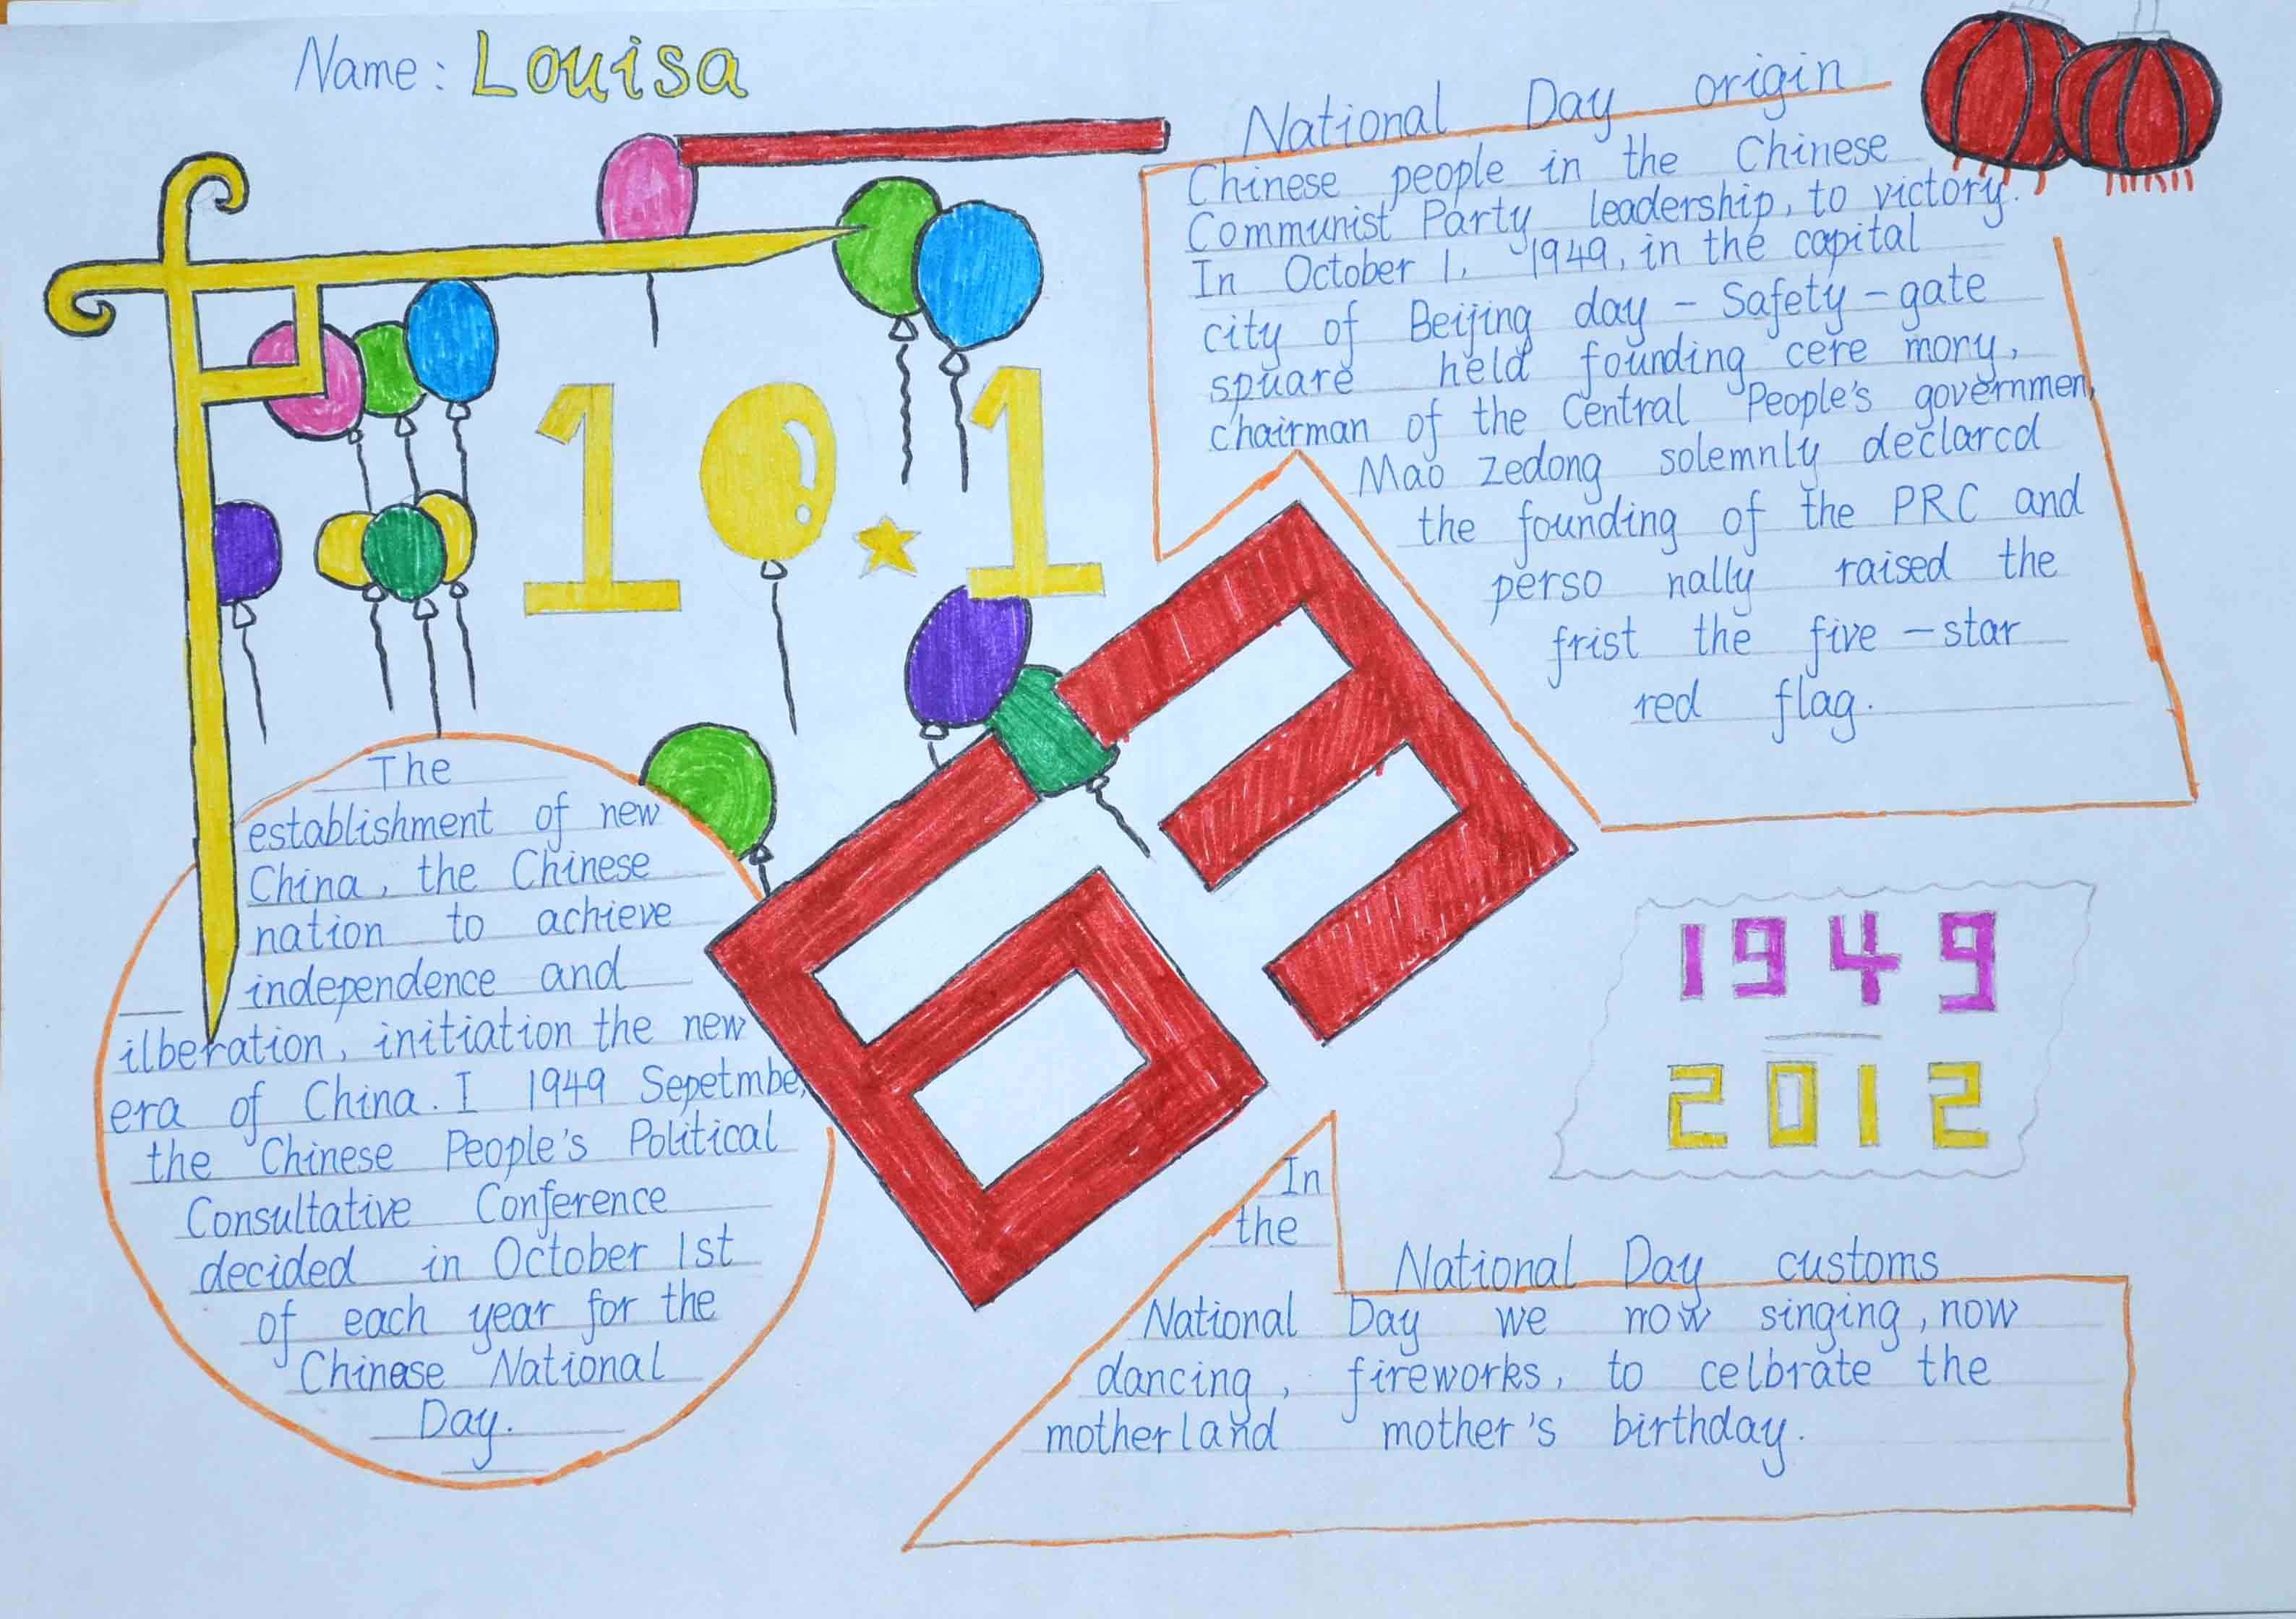 Name: Louisa
National Day origin
Chinese people in the Chinese
Communist Party leadership, to victory.
In October 1, 1949, in the capital
city of Beijing day - Safety - gate
spuare held founding cere mory,
chairman of the Central People's governmen,
Mao zedong solemnly declarcd
the founding of the PRC and
perso nally raised the
frist the five - star
red flag.
10.1
63
The
establishment of new
China, the Chinese
nation to achieve
independence and
ilberation, initiation the new
era of China. I 1949 Sepetmber,
the Chinese People's Political
Consultative Conference
decided in October 1st
of each year for the
Chinese National
Day.
1949
2012
National Day customs
In
the
National Day we now singing, now
dancing, fireworks, to celbrate the
motherland mother's birthday.